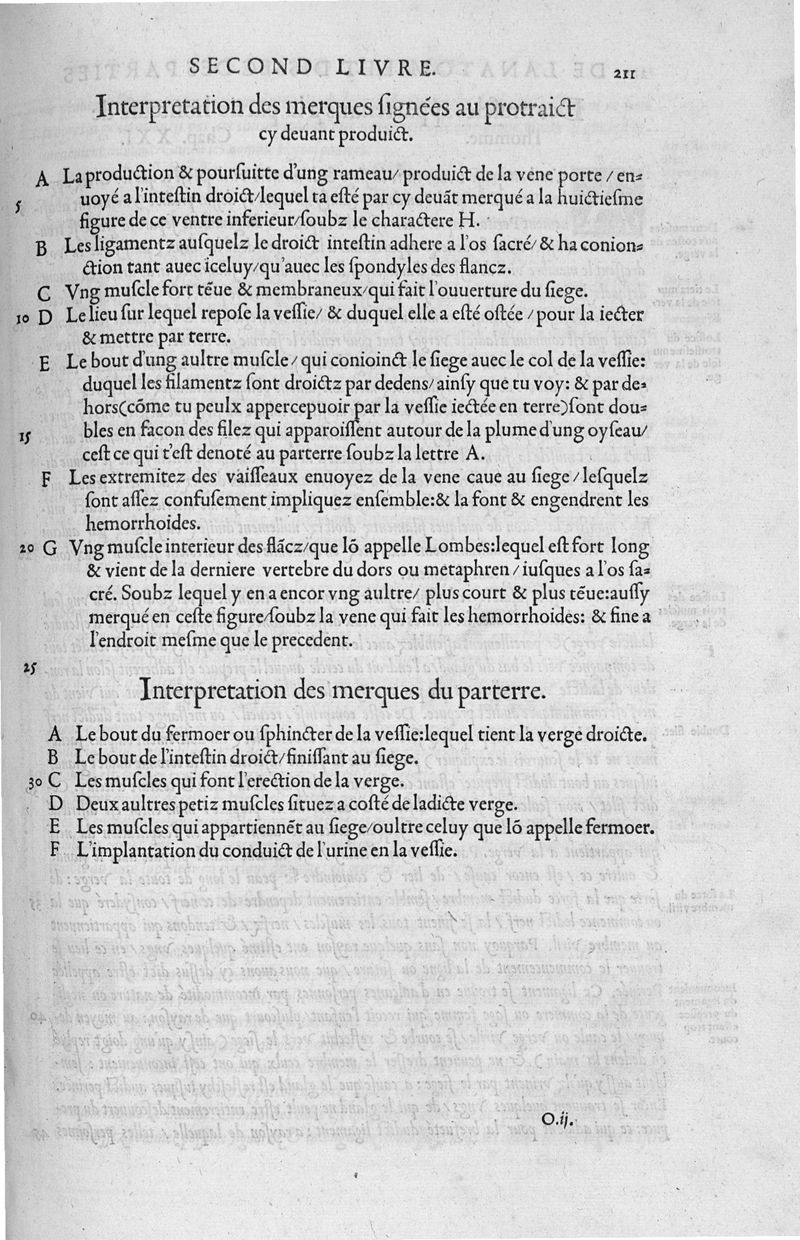 SECOND LIVRE. 211
Interpretation des merques ſignées au protraict
cy deuant produict.
A La production & pourſuitte d'ung rameau/ produict de la vene porte / en=
5 uoyé a l'inteſtin droict/lequel ta eſté par cy deuāt merqué a la huictieſme
figure de ce ventre inferieur/ſoubz le charactere H.
B Les ligamentz auſquelz le droict inteſtin adhere a l'os ſacré/ & ha conion=
ction tant auec iceluy/qu'auec les ſpondyles des flancz.
C Vng muſcle fort tēue & membraneux/qui fait l'ouuerture du ſiege.
10 D Le lieu ſur lequel repoſe la veſſie/ & duquel elle a eſté oſtée /pour la iecter
& mettre par terre.
E Le bout d'ung aultre muſcle/ qui conioinct le ſiege auec le col de la veſſie:
duquel les filamentz ſont droictz par dedens/ainſy que tu voy: & par de=
hors(cōme tu peulx appercepuoir par la veſſie iectée en terre)ſont dou=
15 bles en facon des filez qui apparoiſſent autour de la plume d'ung oyſeau/
ceſt ce qui t'eſt denoté au parterre ſoubz la lettre A.
F Les extremitez des vaiſſeaux enuoyez de la vene caue au ſiege /leſquelz
ſont aſſez confuſement impliquez enſemble:& la font & engendrent les
hemorrhoides.
20 G Vng muſcle interieur des flācz/que lō appelle Lombes:lequel eſt fort long
& vient de la derniere vertebre du dors ou metaphren /iuſques a l'os ſa=
cré. Soubz lequel y en a encor vng aultre/ plus court & plus tēue:auſſy
merqué en ceſte figure/ſoubz la vene qui fait les hemorrhoides: & fine a
l'endroit meſme que le precedent.
25
Interpretation des merques du parterre.
A Le bout du fermoer ou ſphincter de la veſſie:lequel tient la verge droicte.
B Le bout de l'inteſtin droict/finiſſant au ſiege.
30 C Les muſcles qui font l'erection de la verge.
D Deux aultres petiz muſcles ſituez a coſté de ladicte verge.
E Les muſcles qui appartiennēt au ſiege/oultre celuy que lō appelle fermoer.
F L'implantation du conduict de l'urine en la veſſie.
O.ij.